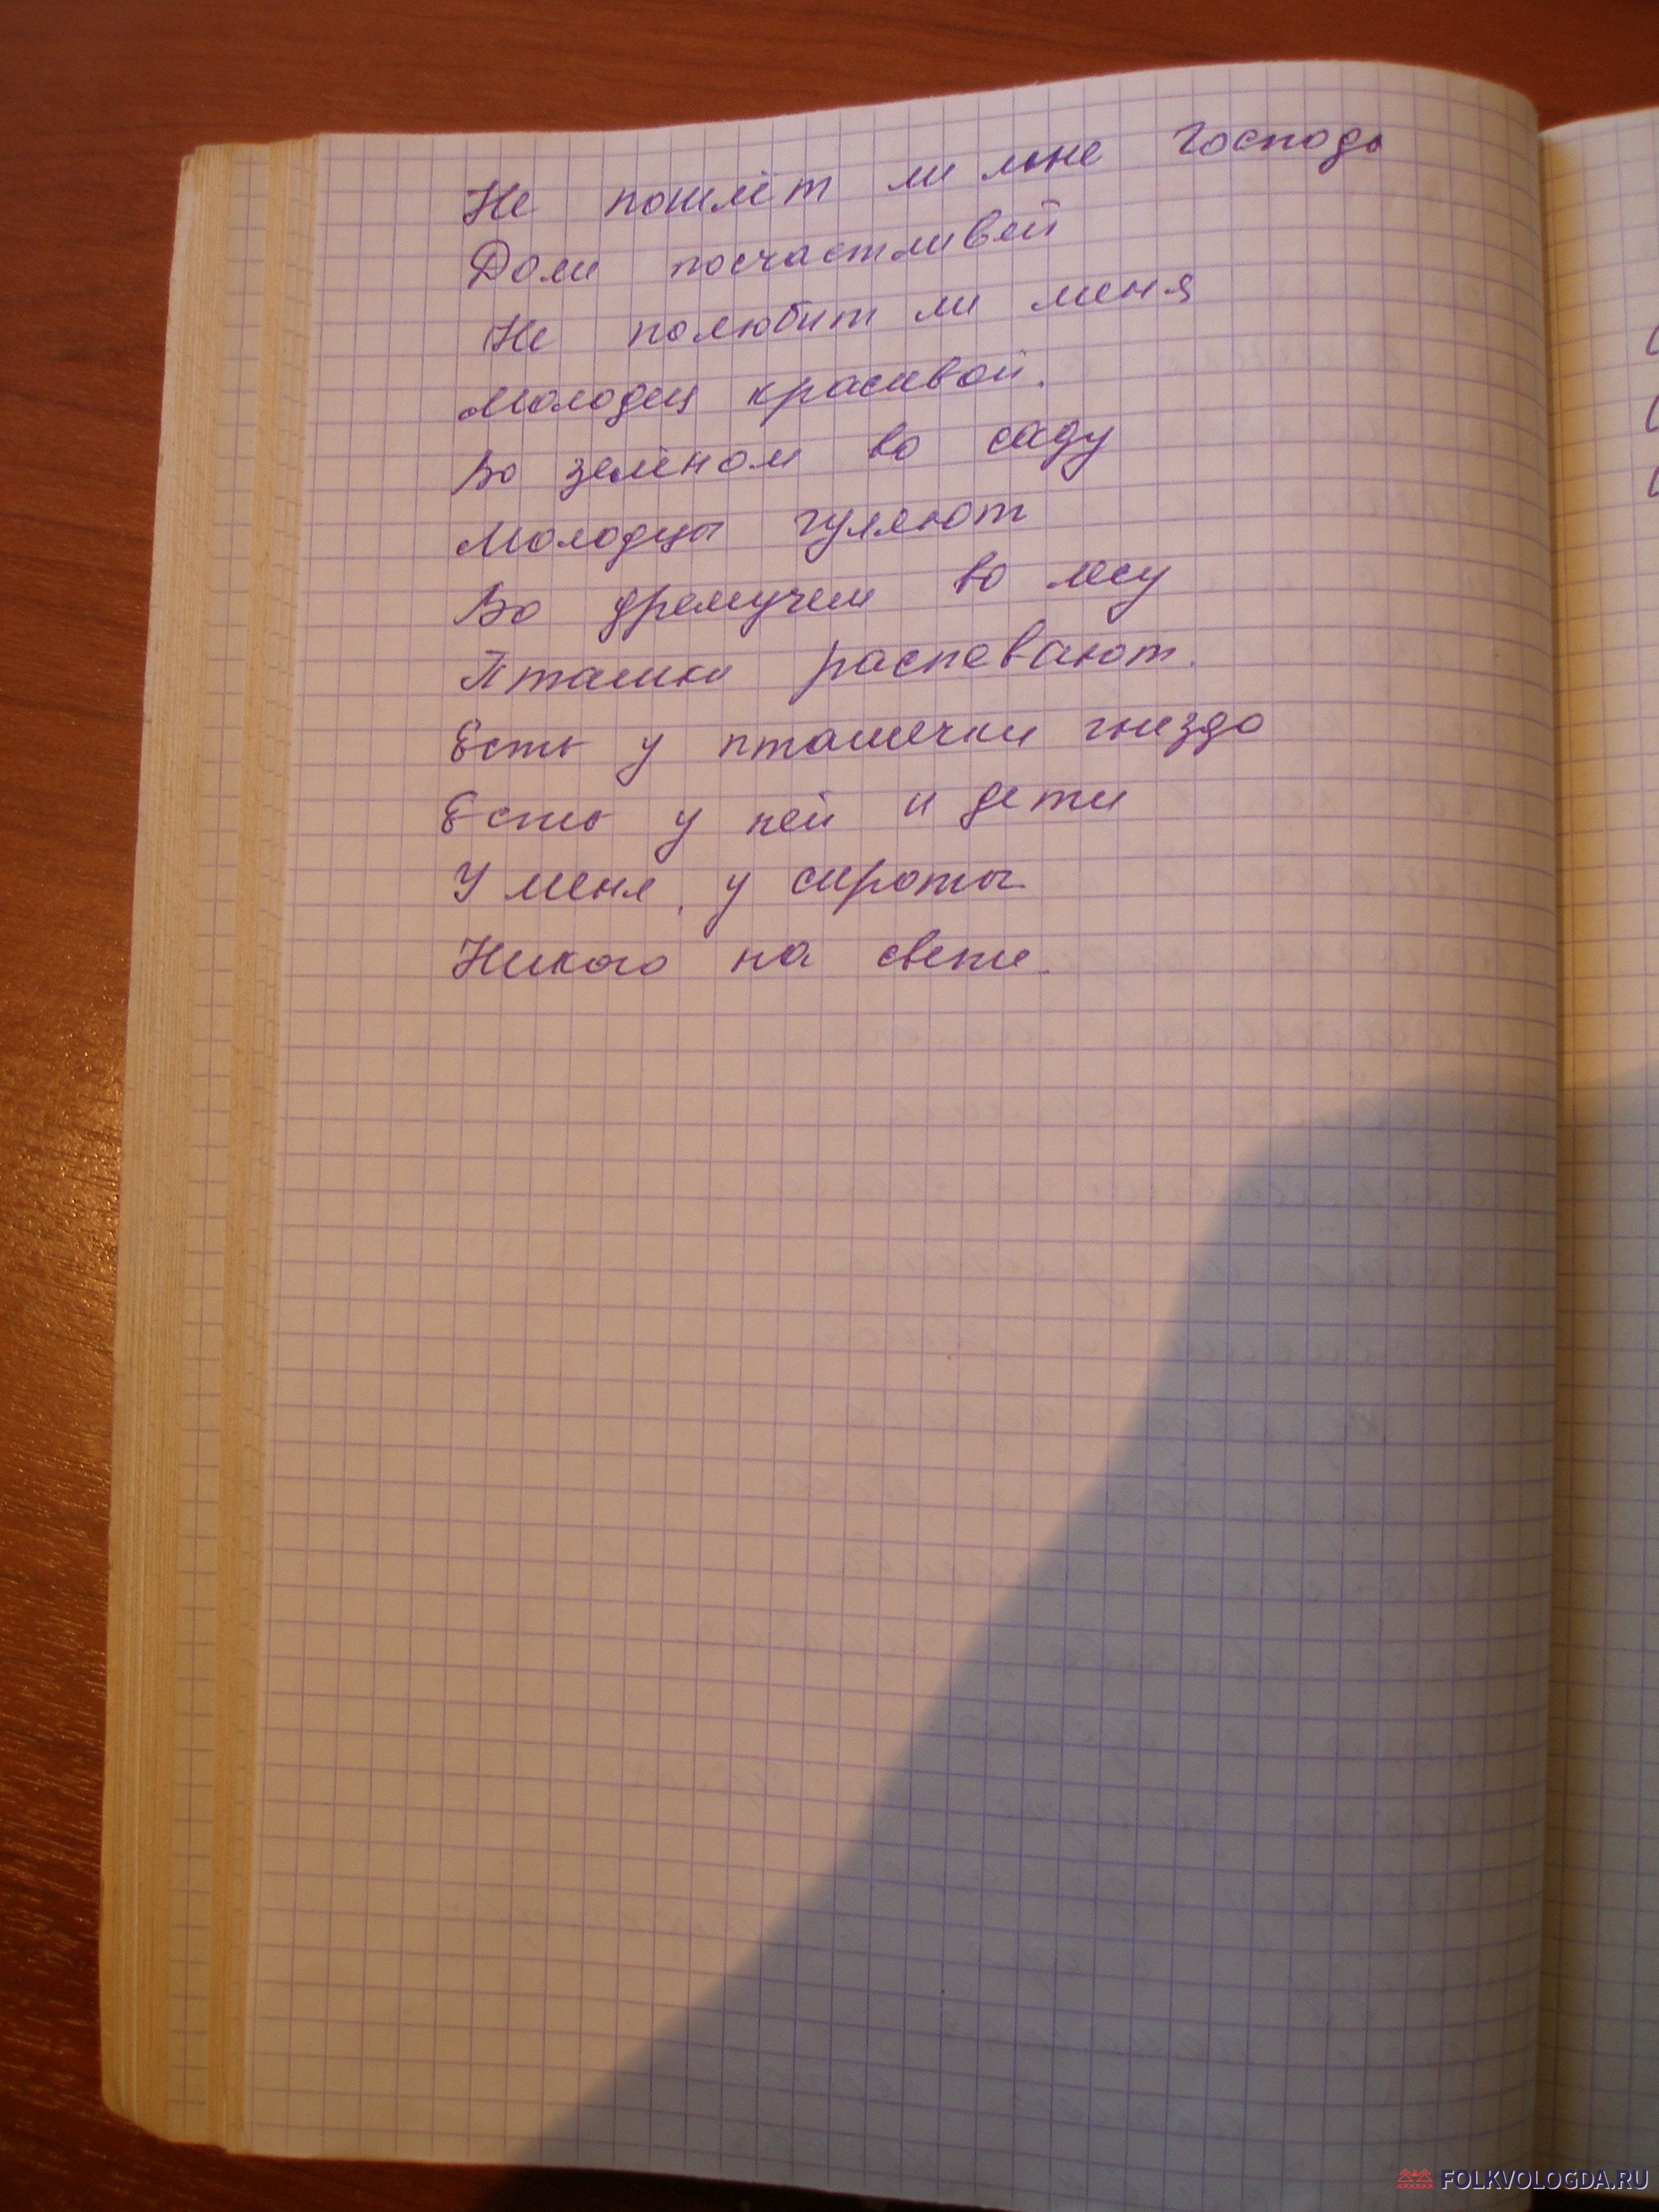 Не пошлёт ли мне Господь
Доли посчастливей
Не полюбит ли меня
Молодец красивой.
Во зелёном во саду
Молодцы гуляют
Во дремучем во лесу
Пташки распевают.
Есть у пташечки гнездо
Есть у ней и дети
У меня, у сироты
Никого на свете.
FOLKVOLOGDA.RU